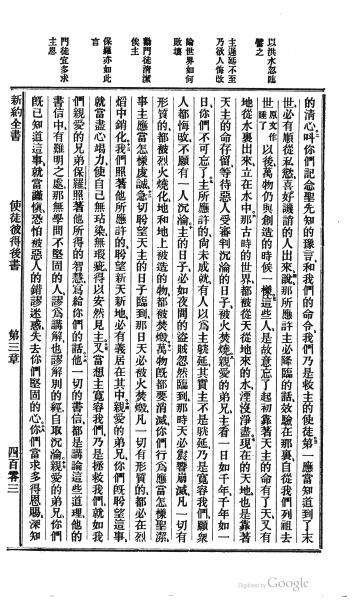 以洪水忽臨
譬之
主遲延不至
乃欲人悔改
論世界如何
敗壞
勸門徒清潔
俟主
保羅亦如此
言
門徒宜多求
主恩
的清心呌你們記念聖先知的豫言和我們的命令我們乃是救主的使徒第一應當知道到了末
世必有順從私慾喜好譏誚的人出來說那所應許主必降臨的話效驗在那裏自從我們列祖去
世原文作睡了以後萬物仍與創造的時候一樣這些人是故意忘了起初靠著天主的命有了天又有
地從水裏出來立在水中那古時的世界都被從天從地來的水湮沒淨盡現在的天地也是靠著
天主的命存留等待惡人受審判沉淪的日子被火焚燒親愛的弟兄主看一日如千年千年如一
日你們不可忘了主所應許的尚未成就有人以爲主躭延其實主不是躭延乃是寬容我們願衆
人都悔改不願有一人沉淪主的日子必如夜間的盜賊忽然臨到那時天必震響崩滅凡一切有
形質的都被烈火熔化地和地上被造的物都被焚燬萬物旣都要消滅你們行爲應當怎樣聖潔
事主應當怎樣虔誠急切盼望天主的日子臨到那日天必被火焚燬凡一切有形質的都必在烈
焰中銷化我們照著他所應許的盼望新天新地必有義居在其中親愛的弟兄你們旣盼望這事
就當盡心竭力使自己無玷染無瑕疵得以安然見主又當想主寬容我們乃是拯救我們就如我
們親愛的兄弟保羅照著他所得的智慧寫給你們的話他一切的書信都是講論這些道理他的
書信中有難明之處那無學問不堅固的人謬爲講解也謬解別的經自取沉淪親愛的弟兄你們
旣已知道這事就當謹愼恐怕被惡人的錯謬迷惑失去你們堅固的心你們當求多得恩賜深知
新約全書 使徒彼得後書 第三章 四百零三
Digitized by Google